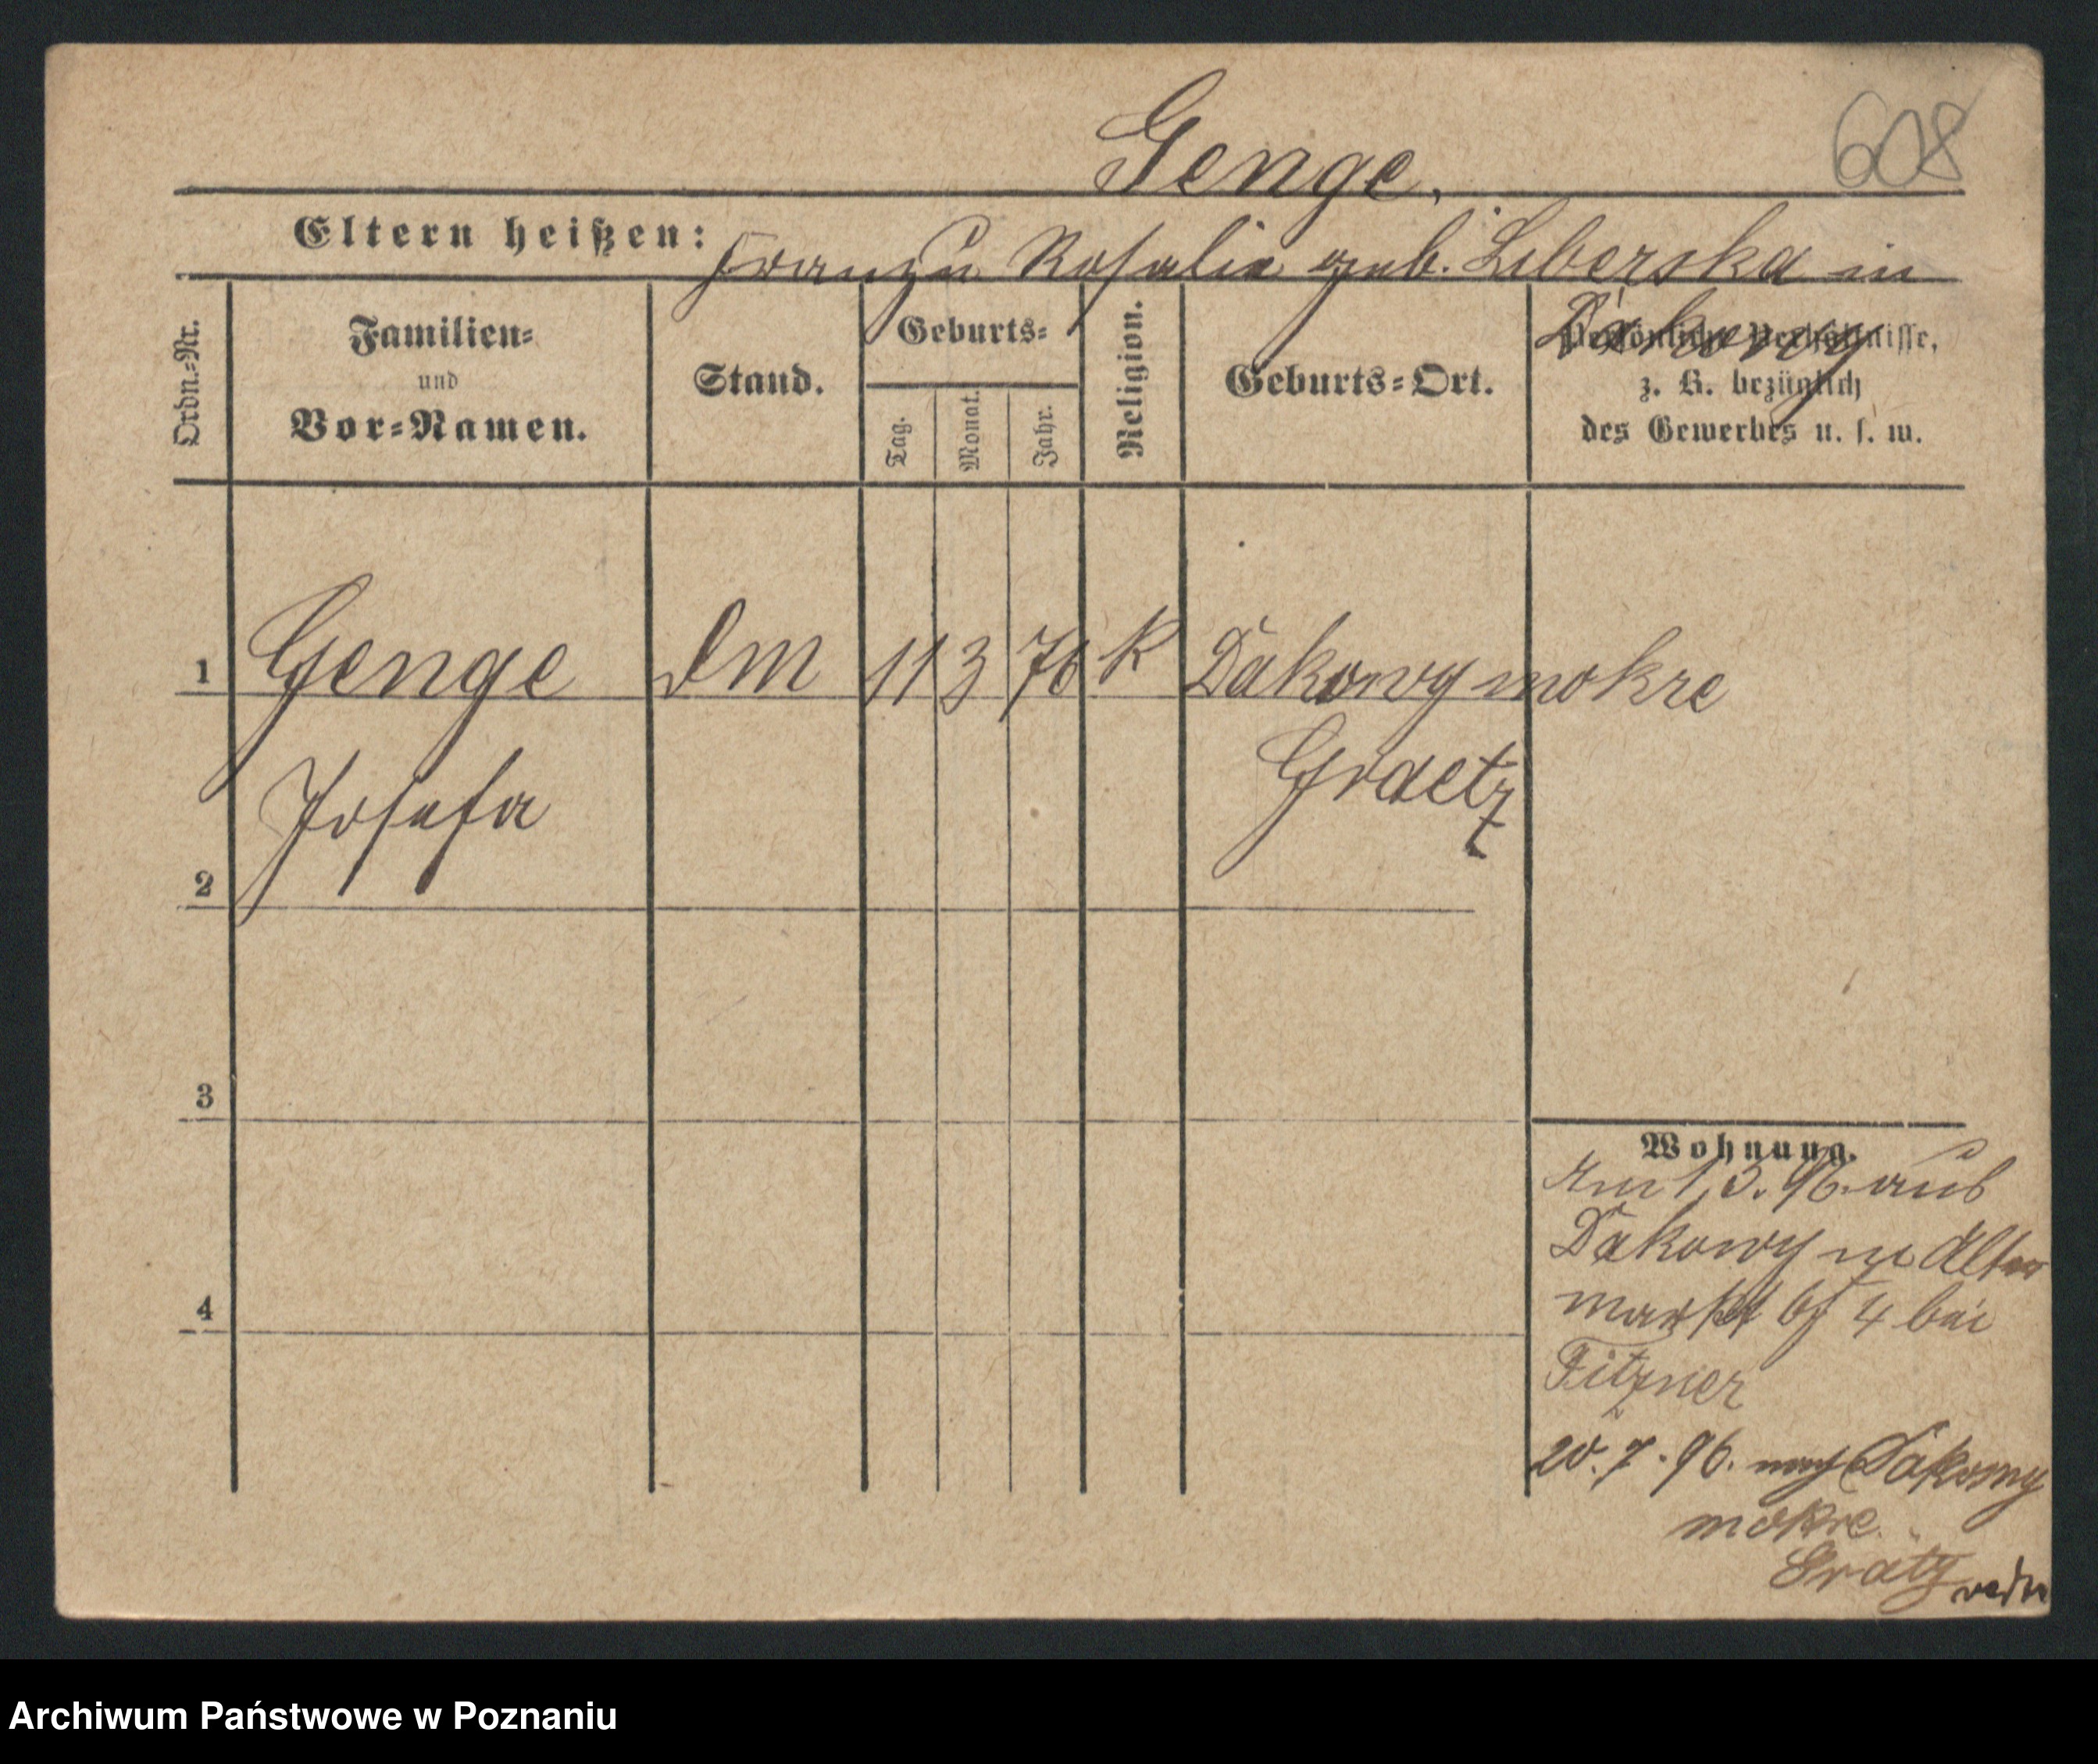 608
Genge.
Eltern heißen: Franz u Rosalie geb. Liberska in
Dakowy
Ordn.-Nr.
Familien-
und
Vor-Namen.
Stand.
Geburts-
Tag.
Monat.
Jahr.
Religion.
Geburts-Ort.
Persönliche Verhältnisse,
z. B. bezüglich
des Gewerbes u. s. w.
1 Genge Dm 11 3 76 K Dakowy mokre
Josefa Graetz
2
3
4
Wohnung.
Am 1/3. 96. aus
Dakowy n Alter
markt 4 bei
Fitzner
20. 7. 96. nach Dakowy
mokre.
Grätz
Archiwum Państwowe w Poznaniu